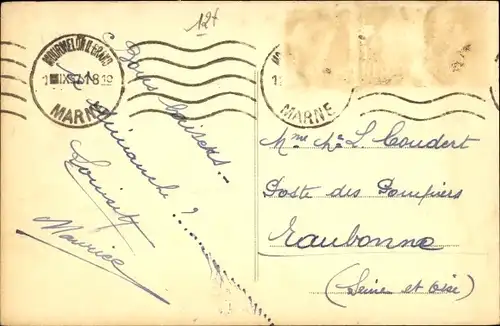 12f
MOURMELON LE GRAND
MARNE
MARNE
Bons baisers.-
à dimanche ?
Louisette
Maurice
Mme Me L Coudert
Poste des Pompiers
Eaubonne
(Seine et Oise)